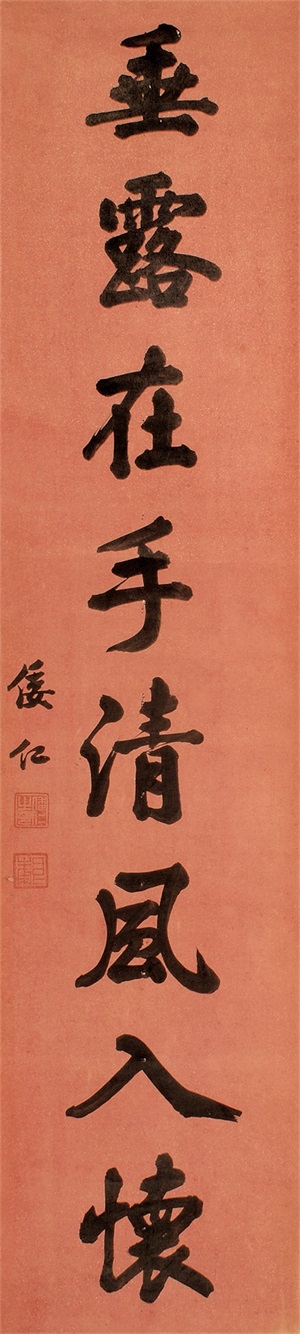 垂露在手清風入懷
倭仁